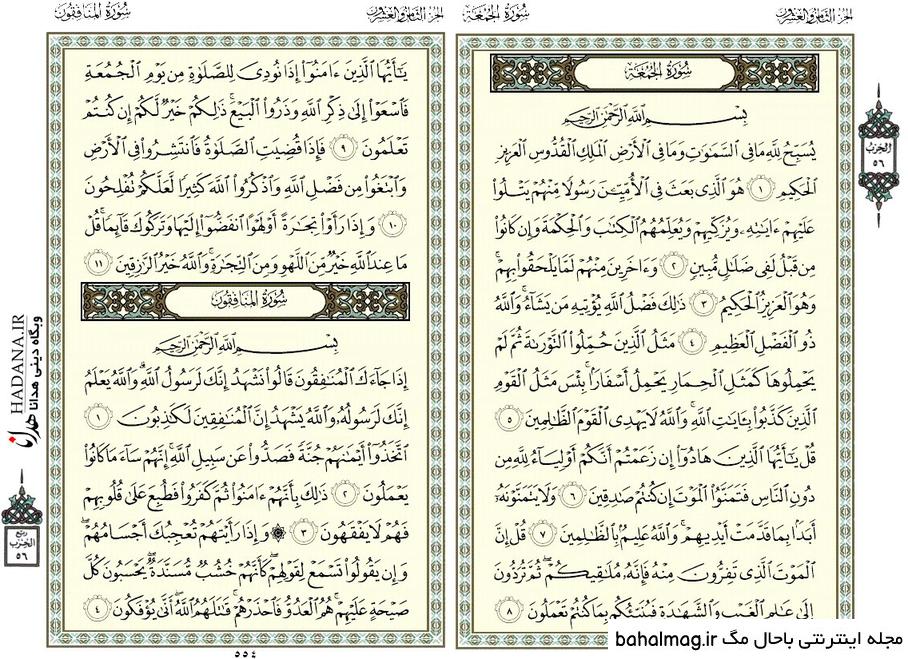 الجزء الثامن والعشرون
سورة الجمعة
سورة الجمعة
بسم الله الرحمن الرحيم
يُسَبِّحُ لِلَّهِ مَا فِي ٱلسَّمَٰوَٰتِ وَمَا فِي ٱلْأَرْضِ ٱلْمَلِكِ ٱلْقُدُّوسِ ٱلْعَزِيزِ
ٱلْحَكِيمِ ١ هُوَ ٱلَّذِي بَعَثَ فِي ٱلْأُمِّيِّـۧنَ رَسُولًا مِّنْهُمْ يَتْلُوا۟
عَلَيْهِمْ ءَايَٰتِهِۦ وَيُزَكِّيهِمْ وَيُعَلِّمُهُمُ ٱلْكِتَٰبَ وَٱلْحِكْمَةَ وَإِن كَانُوا۟
مِن قَبْلُ لَفِي ضَلَٰلٍ مُّبِينٍ ٢ وَءَاخَرِينَ مِنْهُمْ لَمَّا يَلْحَقُوا۟ بِهِمْ ۚ
وَهُوَ ٱلْعَزِيزُ ٱلْحَكِيمُ ٣ ذَٰلِكَ فَضْلُ ٱللَّهِ يُؤْتِيهِ مَن يَشَآءُ ۚ وَٱللَّهُ
ذُو ٱلْفَضْلِ ٱلْعَظِيمِ ٤ مَثَلُ ٱلَّذِينَ حُمِّلُوا۟ ٱلتَّوْرَىٰةَ ثُمَّ لَمْ
يَحْمِلُوهَا كَمَثَلِ ٱلْحِمَارِ يَحْمِلُ أَسْفَارًۢا ۚ بِئْسَ مَثَلُ ٱلْقَوْمِ
ٱلَّذِينَ كَذَّبُوا۟ بِـَٔايَٰتِ ٱللَّهِ ۚ وَٱللَّهُ لَا يَهْدِي ٱلْقَوْمَ ٱلظَّٰلِمِينَ ٥
قُلْ يَٰٓأَيُّهَا ٱلَّذِينَ هَادُوٓا۟ إِن زَعَمْتُمْ أَنَّكُمْ أَوْلِيَآءُ لِلَّهِ مِن
دُونِ ٱلنَّاسِ فَتَمَنَّوُا۟ ٱلْمَوْتَ إِن كُنتُمْ صَٰدِقِينَ ٦ وَلَا يَتَمَنَّوْنَهُۥٓ
أَبَدًۢا بِمَا قَدَّمَتْ أَيْدِيهِمْ ۚ وَٱللَّهُ عَلِيمٌۢ بِٱلظَّٰلِمِينَ ٧ قُلْ إِنَّ
ٱلْمَوْتَ ٱلَّذِي تَفِرُّونَ مِنْهُ فَإِنَّهُۥ مُلَٰقِيكُمْ ۖ ثُمَّ تُرَدُّونَ
إِلَىٰ عَٰلِمِ ٱلْغَيْبِ وَٱلشَّهَٰدَةِ فَيُنَبِّئُكُم بِمَا كُنتُمْ تَعْمَلُونَ ٨
الحزب
٥٦
الجزء الثامن والعشرون
سورة المنافقون
يَٰٓأَيُّهَا ٱلَّذِينَ ءَامَنُوٓا۟ إِذَا نُودِيَ لِلصَّلَوٰةِ مِن يَوْمِ ٱلْجُمُعَةِ
فَٱسْعَوْا۟ إِلَىٰ ذِكْرِ ٱللَّهِ وَذَرُوا۟ ٱلْبَيْعَ ۚ ذَٰلِكُمْ خَيْرٌ لَّكُمْ إِن كُنتُمْ
تَعْلَمُونَ ٩ فَإِذَا قُضِيَتِ ٱلصَّلَوٰةُ فَٱنتَشِرُوا۟ فِي ٱلْأَرْضِ
وَٱبْتَغُوا۟ مِن فَضْلِ ٱللَّهِ وَٱذْكُرُوا۟ ٱللَّهَ كَثِيرًا لَّعَلَّكُمْ تُفْلِحُونَ
١٠ وَإِذَا رَأَوْا۟ تِجَٰرَةً أَوْ لَهْوًا ٱنفَضُّوٓا۟ إِلَيْهَا وَتَرَكُوكَ قَآئِمًا ۚ قُلْ
مَا عِندَ ٱللَّهِ خَيْرٌ مِّنَ ٱللَّهْوِ وَمِنَ ٱلتِّجَٰرَةِ ۚ وَٱللَّهُ خَيْرُ ٱلرَّٰزِقِينَ ١١
سورة المنافقون
بسم الله الرحمن الرحيم
إِذَا جَآءَكَ ٱلْمُنَٰفِقُونَ قَالُوا۟ نَشْهَدُ إِنَّكَ لَرَسُولُ ٱللَّهِ ۗ وَٱللَّهُ يَعْلَمُ
إِنَّكَ لَرَسُولُهُۥ وَٱللَّهُ يَشْهَدُ إِنَّ ٱلْمُنَٰفِقِينَ لَكَٰذِبُونَ ١
ٱتَّخَذُوٓا۟ أَيْمَٰنَهُمْ جُنَّةً فَصَدُّوا۟ عَن سَبِيلِ ٱللَّهِ ۚ إِنَّهُمْ سَآءَ مَا كَانُوا۟
يَعْمَلُونَ ٢ ذَٰلِكَ بِأَنَّهُمْ ءَامَنُوا۟ ثُمَّ كَفَرُوا۟ فَطُبِعَ عَلَىٰ قُلُوبِهِمْ
فَهُمْ لَا يَفْقَهُونَ ٣ ۞ وَإِذَا رَأَيْتَهُمْ تُعْجِبُكَ أَجْسَامُهُمْ ۖ
وَإِن يَقُولُوا۟ تَسْمَعْ لِقَوْلِهِمْ ۖ كَأَنَّهُمْ خُشُبٌ مُّسَنَّدَةٌ ۖ يَحْسَبُونَ كُلَّ
صَيْحَةٍ عَلَيْهِمْ ۚ هُمُ ٱلْعَدُوُّ فَٱحْذَرْهُمْ ۚ قَٰتَلَهُمُ ٱللَّهُ ۖ أَنَّىٰ يُؤْفَكُونَ ٤
٥٥٤
ربع
الحزب
٥٦
HADANA.IR
وبگاه دینی هدانا
هدانا
مجله اینترنتی باحال مگ bahalmag.ir